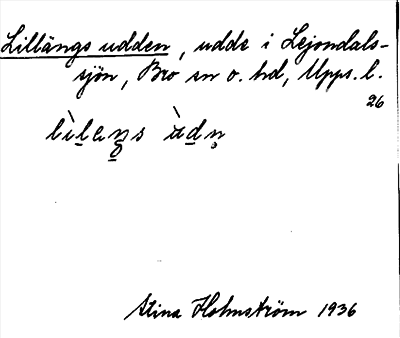 Lillängs udden, udde i Lejondals-
sjön, Bro sn o. hd, Upps. l.
26
Stina Holmström 1936